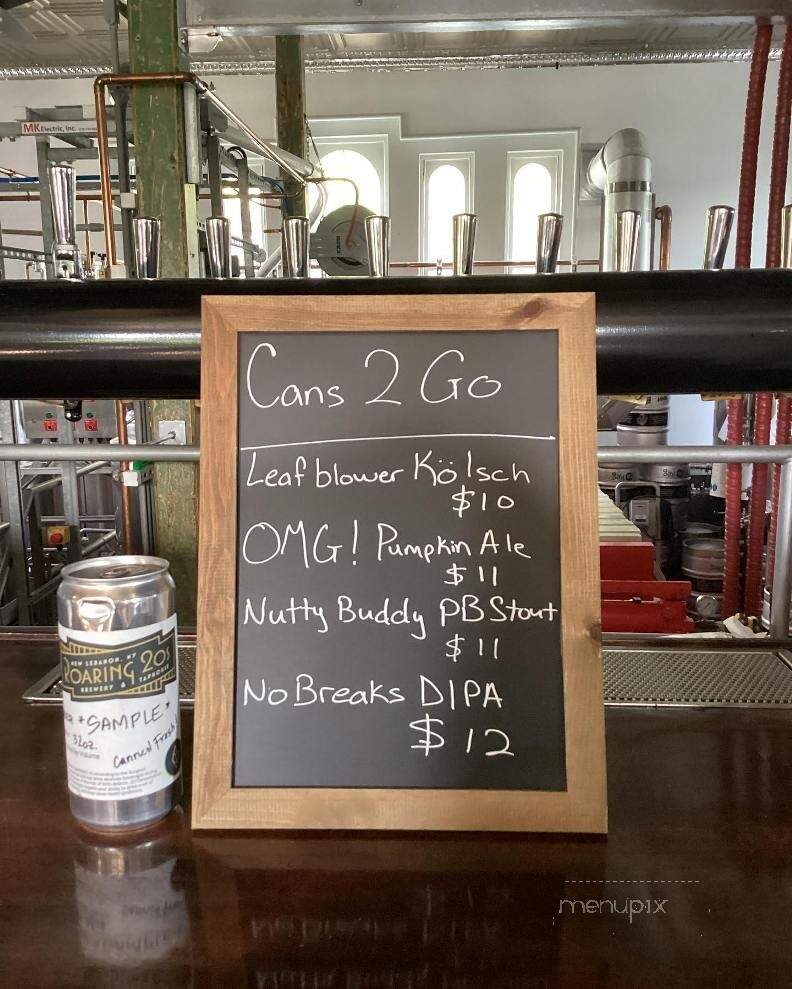 MK Electric, Inc.
Cans 2 Go
Leaf blower Kölsch
$10
OMG! Pumpkin Ale
$11
Nutty Buddy PB Stout
$11
No Breaks DIPA
$12
NEW LEBANON, NY
ROARING 20s
BREWERY & TAPROOM
*SAMPLE*
32oz.
Canned Fresh
menupix